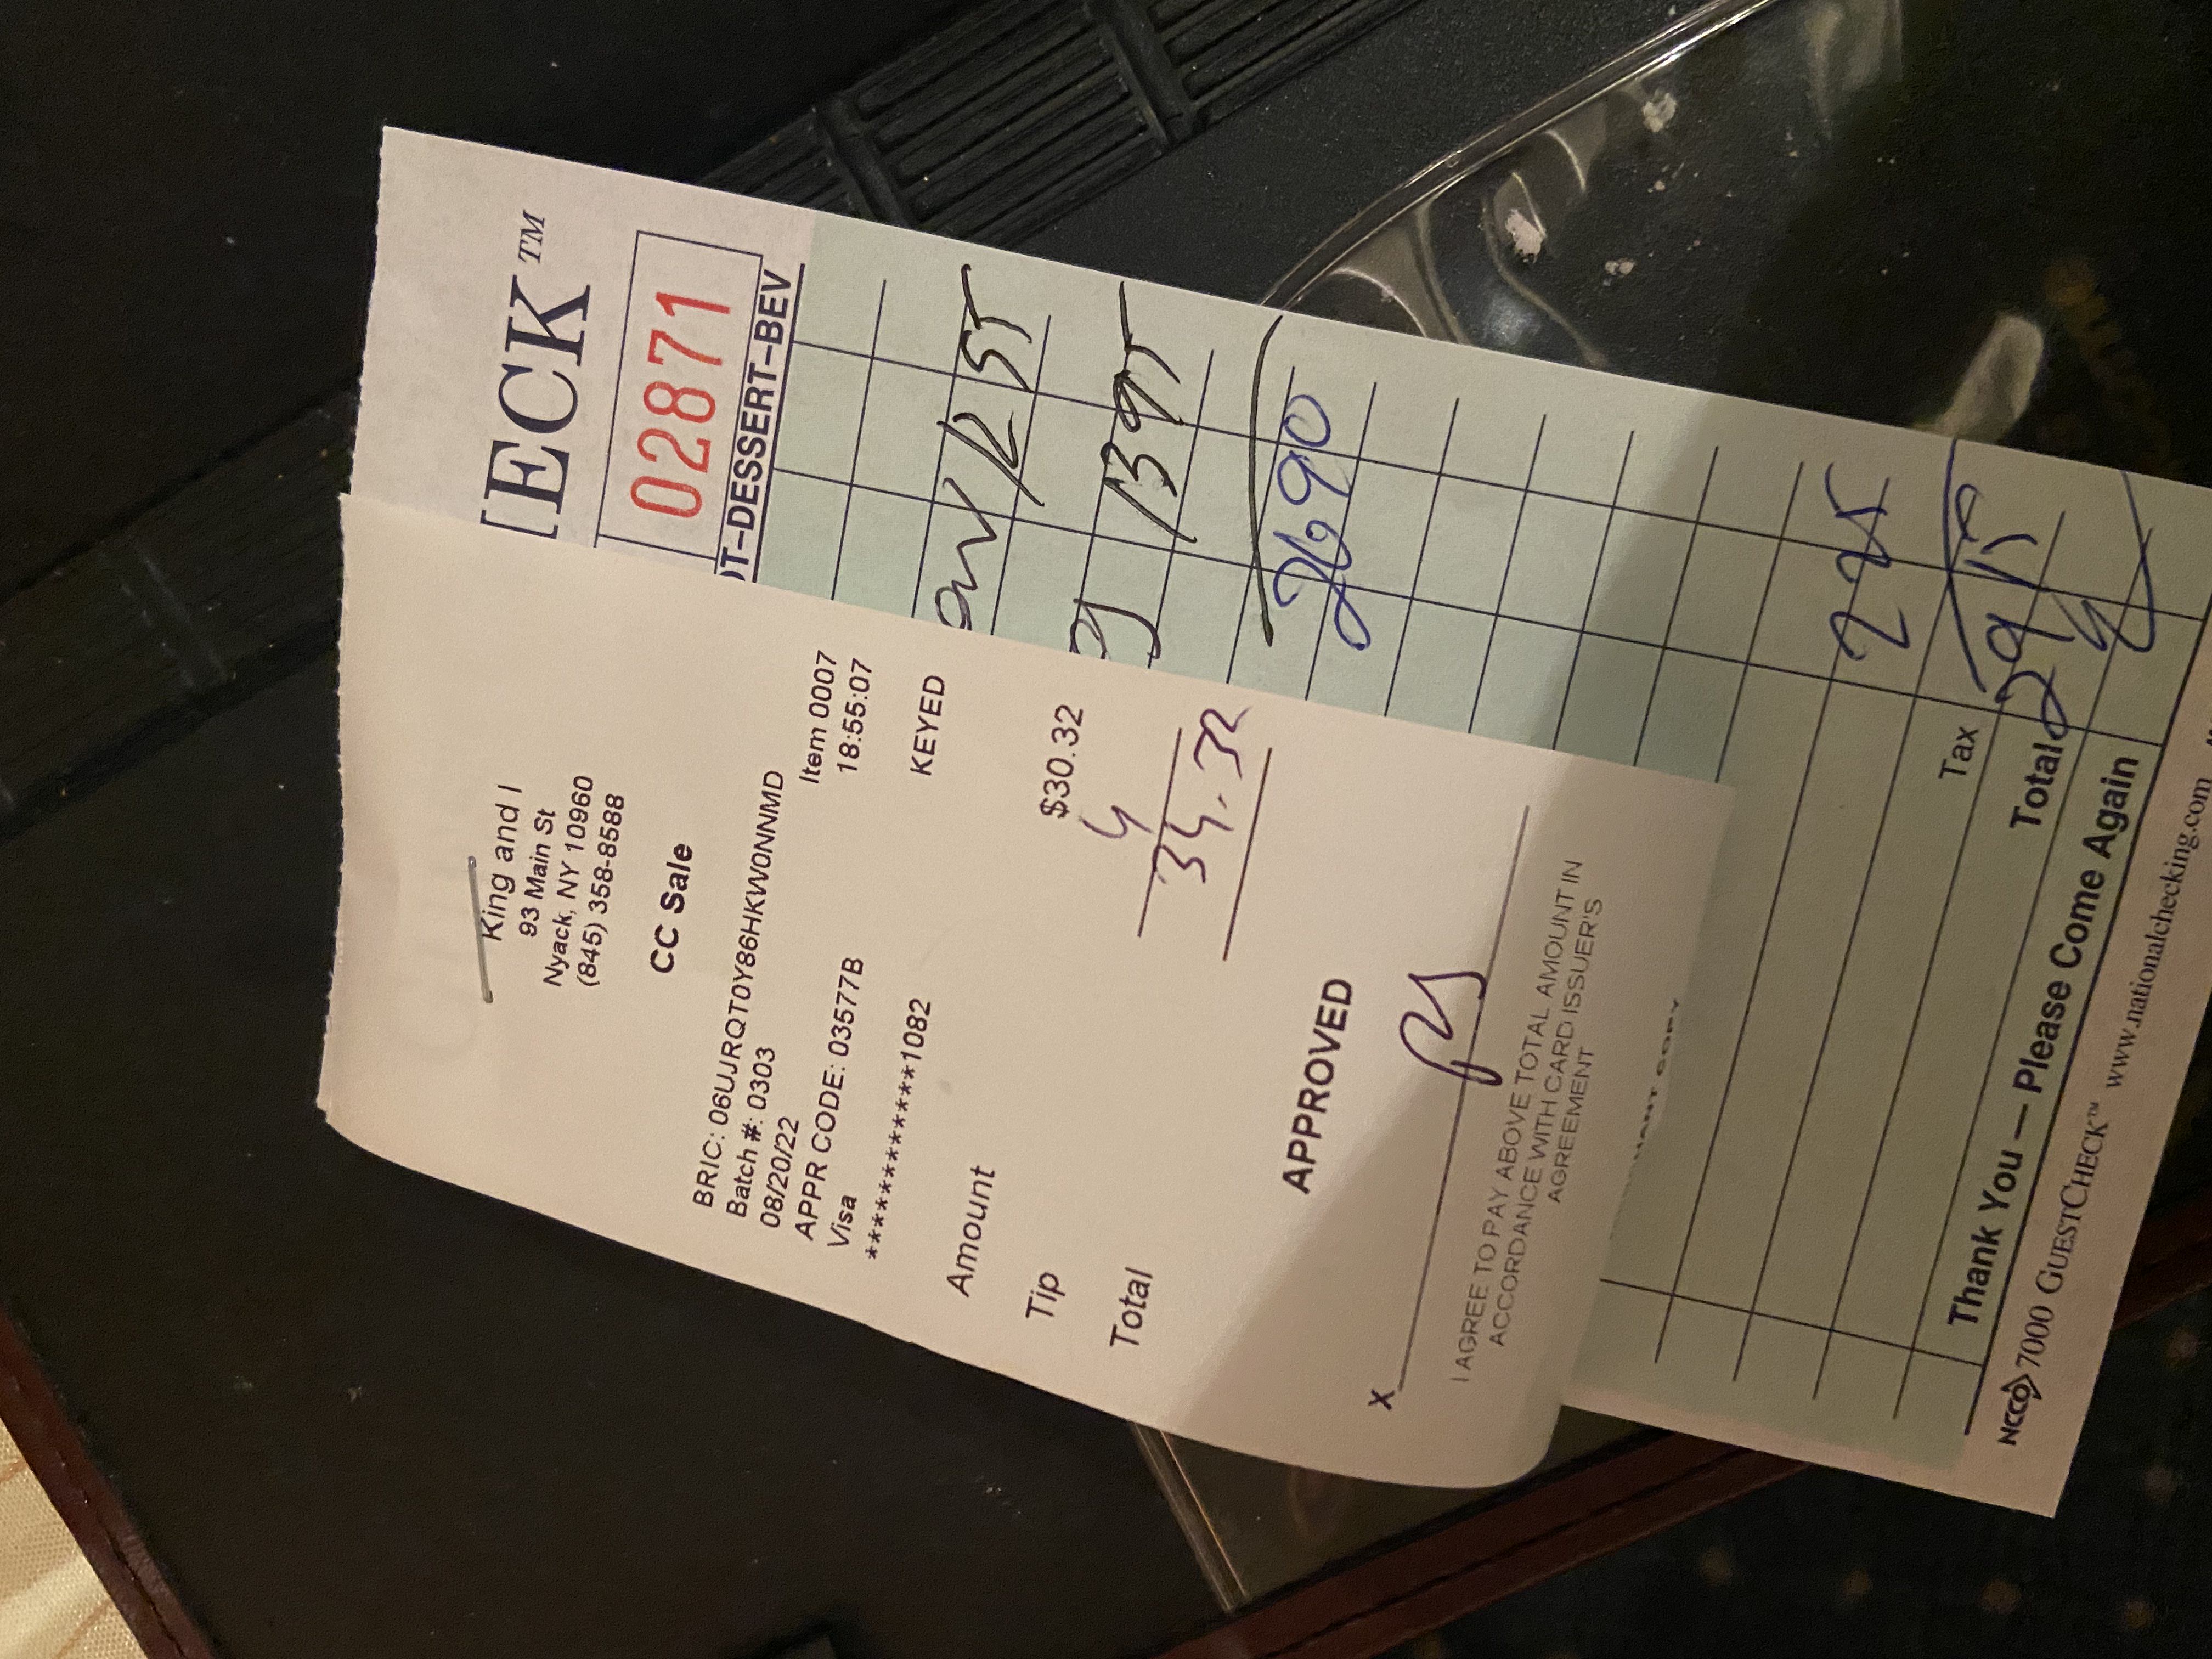 King and I
93 Main St
Nyack, NY 10960
(845) 358-8588
CC Sale
BRIC: 06UJRQT0Y86HKW0NNMD
Batch #: 0303
Item 0007
08/20/22
18:55:07
APPR CODE: 03577B
Visa
KEYED
************1082
Amount
$30.32
Tip
4
Total
34.32
APPROVED
x
I AGREE TO PAY ABOVE TOTAL AMOUNT IN
ACCORDANCE WITH CARD ISSUER'S
AGREEMENT
HANT COPY
HECK™
02871
OT–DESSERT–BEV
12 55
13 95
26 90
2 25
Tax
Total 29 15
Thank You — Please Come Again
NCCO 7000 GUESTCHECK™ www.nationalchecking.com